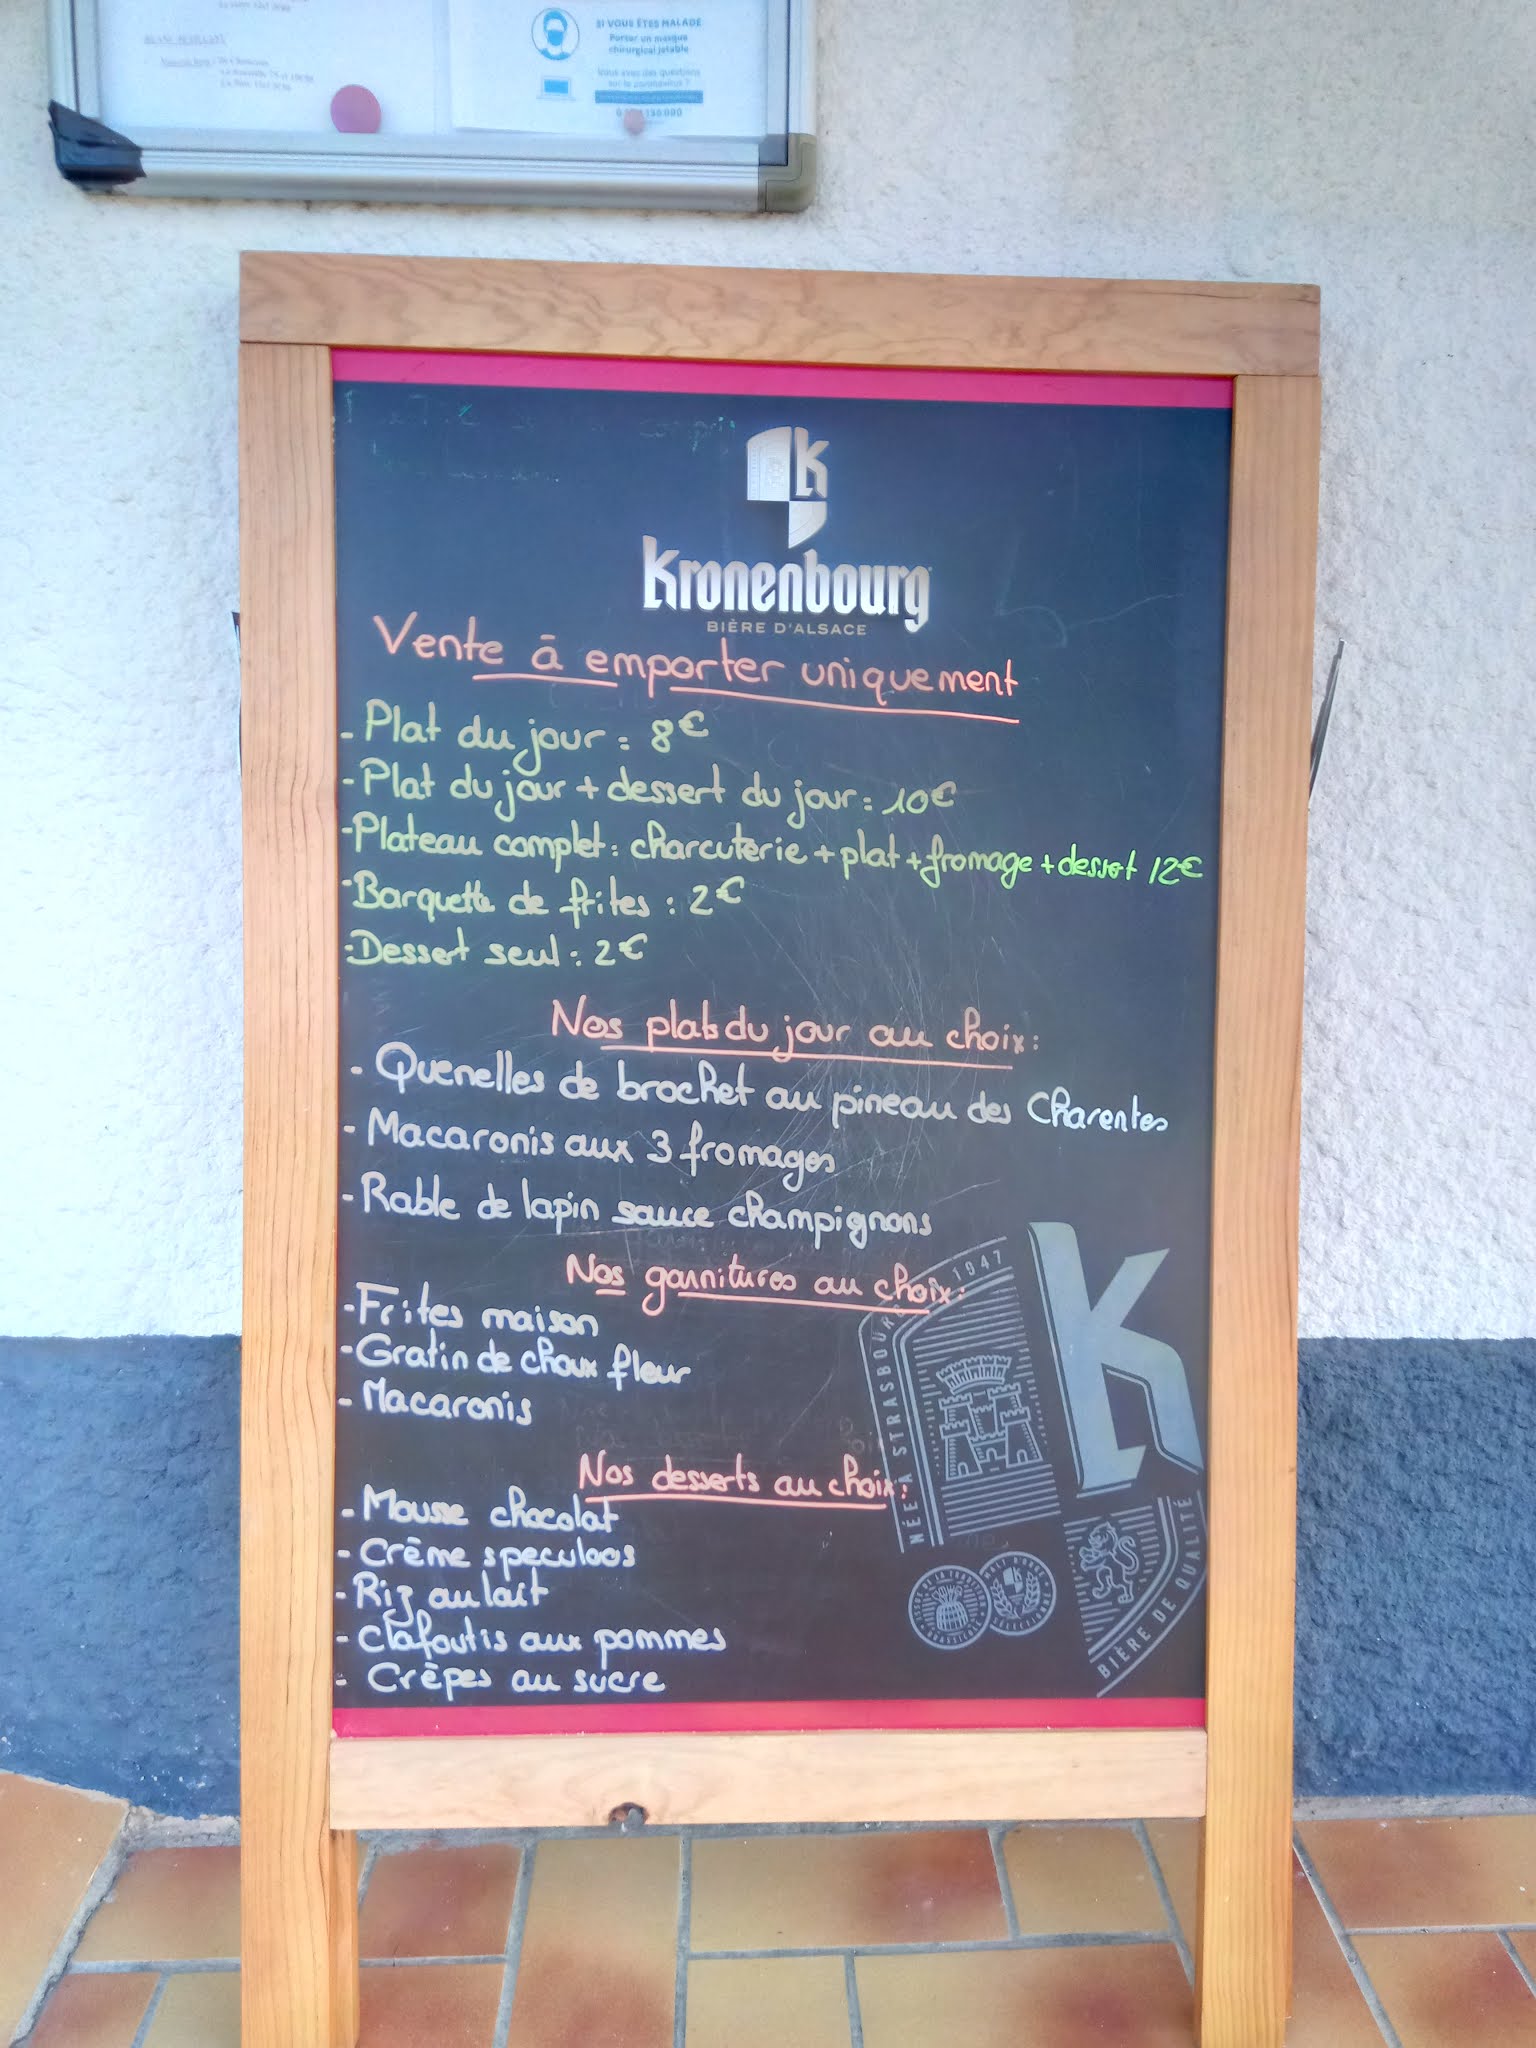 SI VOUS ÊTES MALADE
Porter un masque
chirurgical jetable
Vous avez des questions
sur le coronavirus ?
Kronenbourg
BIÈRE D'ALSACE
Vente à emporter uniquement
- Plat du jour : 8€
- Plat du jour + dessert du jour : 10€
- Plateau complet : charcuterie + plat + fromage + dessert 12€
- Barquette de frites : 2€
- Dessert seul : 2€
Nos plats du jour au choix :
- Quenelles de brochet au pineau des Charentes
- Macaronis aux 3 fromages
- Rable de lapin sauce champignons
Nos garnitures au choix :
- Frites maison
- Gratin de choux fleur
- Macaronis
Nos desserts au choix :
- Mousse chocolat
- Crème speculoos
- Riz au lait
- Clafoutis aux pommes
- Crêpes au sucre
NÉE À STRASBOURG 1947
K
BIÈRE DE QUALITÉ